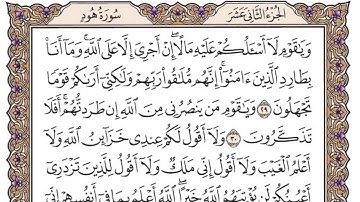 سُورَةُ هُودٍ الجُزْءُ الثَّانِي عَشَرَ
وَيَٰقَوْمِ لَآ أَسْـَٔلُكُمْ عَلَيْهِ مَالًا ۖ إِنْ أَجْرِىَ إِلَّا عَلَى ٱللَّهِ ۚ وَمَآ أَنَا۠
بِطَارِدِ ٱلَّذِينَ ءَامَنُوٓا۟ ۚ إِنَّهُم مُّلَٰقُوا۟ رَبِّهِمْ وَلَٰكِنِّىٓ أَرَىٰكُمْ قَوْمًا
تَجْهَلُونَ ٢٩ وَيَٰقَوْمِ مَن يَنصُرُنِى مِنَ ٱللَّهِ إِن طَرَدتُّهُمْ ۚ أَفَلَا
تَذَكَّرُونَ ٣٠ وَلَآ أَقُولُ لَكُمْ عِندِى خَزَآئِنُ ٱللَّهِ وَلَآ
أَعْلَمُ ٱلْغَيْبَ وَلَآ أَقُولُ إِنِّى مَلَكٌ وَلَآ أَقُولُ لِلَّذِينَ تَزْدَرِىٓ
أَعْيُنُكُمْ لَن يُؤْتِيَهُمُ ٱللَّهُ خَيْرًا ۖ ٱللَّهُ أَعْلَمُ بِمَا فِىٓ أَنفُسِهِمْ ۖ إِنِّىٓ